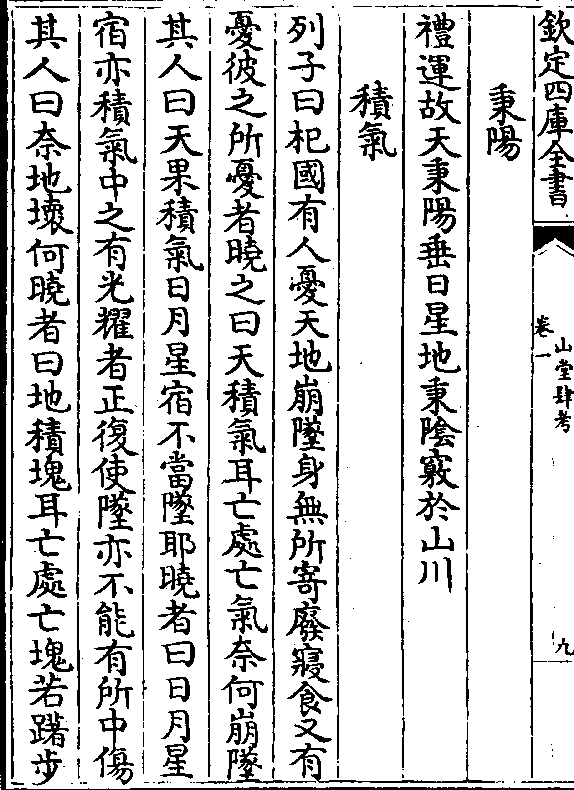 欽定四庫全書
山堂肆考
卷一
九
秉陽
禮運故天秉陽垂日星地秉陰竅於山川
積氣
列子曰杞國有人憂天地崩墜身無所寄廢寢食又有
憂彼之所憂者曉之曰天積氣耳亡處亡氣奈何崩墜
其人曰天果積氣日月星宿不當墜耶曉者曰日月星
宿亦積氣中之有光耀者正復使墜亦不能有所中傷
其人曰奈地壞何曉者曰地積塊耳亡處亡塊若躇步